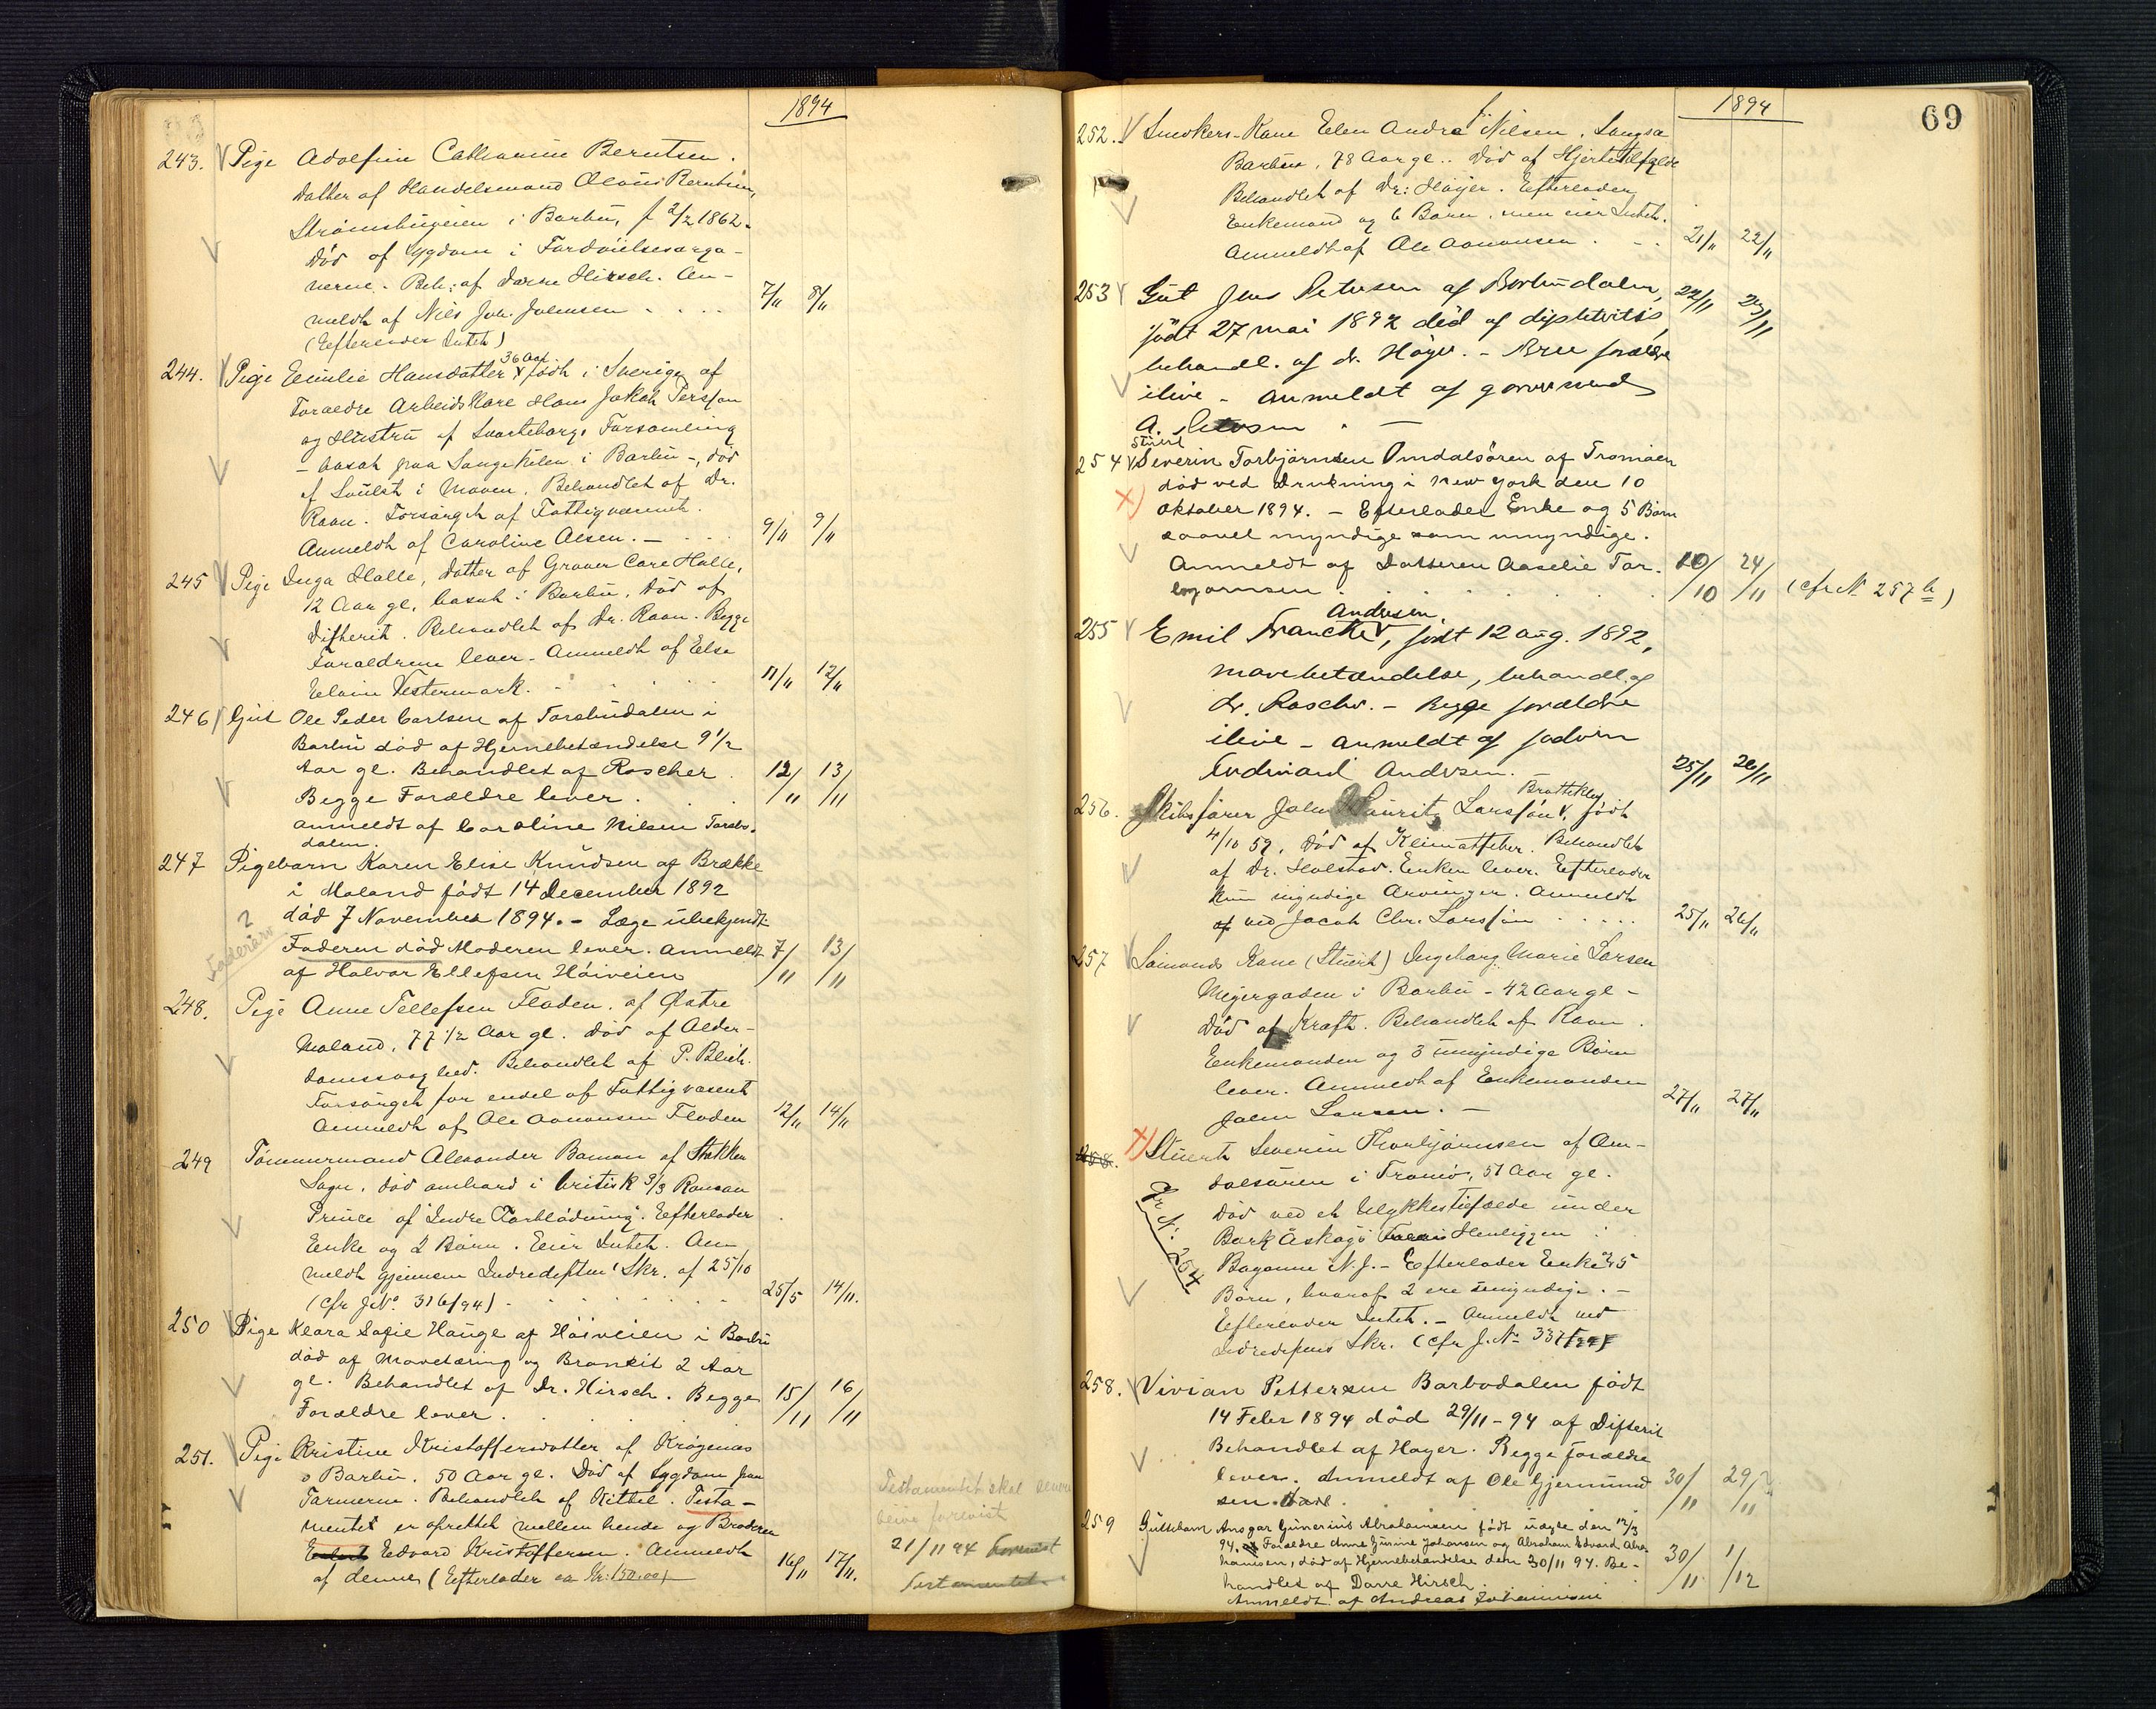 1894
243. Pige Adolfine Cathrine Berntsen.
Datter af Handelsmand Olaus Berntsen,
Strømsbuveien i Barbu, f 2/2 1862.
Død af Sygdom i Fordøielsesorga-
nerne. Beh: af Doene Hirsch. An-
meldt af Nils Joh. Johnsen . . . . 7/11 8/11
(Efterlader Intet)
36 Aar
244. Pige Emilie Hansdatter født i Sverige af
Forældre Arbeidskare Hans Jakob Persson
og Hustru af Svarteborgs Forsamling
- bosat paa Langekilen i Barbu -, død
af Svulst i Maven. Behandlet af Dr.
Raan. Forsørget af Fattigvæsenet.
Anmeldt af Caroline Olsen. - . . . 9/11 9/11
245 Pige Inga Halle, datter af Graver Care Halle,
12 Aar gl. bosat i Barbu. Død af
Difterit. Behandlet af Dr. Raan. Begge
Forældrene lever - Anmeldt af Else
Elvine Vestermark. . . . 11/11 12/11
246 Gut Ole Peder Carlsen af Torsbudalen i
Barbu død af Hjernebetændelse 9 1/2
Aar gl. Behandlet af Roscher . 12/11 13/11
Begge Forældre lever . . .
anmeldt af Caroline Nilsen Torsbo-
dalen.
247 Pigebarn Karen Elise Knudsen af Brække
i Moland født 14 December 1892
død 7 November 1894. - Læge ubekjendt
2
Faderen død Moderen lever. anmeldt 7/11 13/11
Faderarv
af Halvor Ellefsen Høiveien
248. Pige Anne Tellefsen Floden. af Østre
Moland, 77 1/2 Aar gl. død af Alder-
domssvaghed. Behandlet af P. Blich.
Forsørget for endel af Fattigvæsenet
Anmeldt af Ole Aanonsen Floden 12/11 14/11
249 Tømmermand Alexander Boman af Stokken
Sogn. død ombord i britisk S/S Roman
Prince af "Indre Forblødning". Efterlader
Enke og 2 Børn. Eier Intet. An-
meldt gjennem Indredeptm' Skr. af 25/10
(cfr J.No. 316/94) . . . . 25/5 14/11.
250 Pige Klara Sofie Hauge af Høiveien i Barbu
død af Mavetæring og Bronkit 2 Aar
gl. Behandlet af Dr. Hirsch. Begge 15/11 16/11
Forældre lever . . . .
251. Pige Kristine Kristoffersdatter af Krøgenæs
i Barbu. 50 Aar gl. Død af Sygdom paa
Tarmerne. Behandlet af Kittel. Testa-
mentet er oprettet mellem hende og Broderen
Edvard Kristoffersen. Anmeldt 16/11 17/11.
af denne (Efterlader ca Kr: 150.00)
Testamentet skal senere
blive forevist
21/11 94 forevist
Testamentet.
69
1894
252. Snedkers-Kone Elen Andrea Nilsen. Langsæ
Barbu, 78 Aar gl.. død af Hjertetilfælde
Behandlet af Dr: Høyer. Efterlader
Enkemand og 6 Børn. men eier Intet.
Anmeldt af Ole Aanonsen . - . . 21/11 22/11
253 Gut Jens Petersen af Barbudalen, 22/11 23/11
født 27 mai 1892 død af difteritis,
behandl. af dr. Høyer. - Bree forældre
ilive - anmeldt af
A.
Stuert
254 Severin Torbjørnsen Omdalsøren af Tromøen
død ved Drukning i New York den 10
Oktober 1894. - Efterlader Enke og 5 Børn
saavel myndige som umyndige.
Anmeldt af Datteren Aaselie Tor- 10/10 24/11 (cfr N 257 b)
bjørnsen . . . . . . .
Andersen.
255 Emil Francke, født 12 aug. 1892,
mavebetændelse, behandl. af
dr. Roscher. - Begge forældre
ilive - anmeldt af faderen
Ferdinand Andersen. - 25/11 26/11
Brattekley
256. Skibsfører John Laurits Larssøn, født
4/10 59. død af Klimatfeber. Behandlet
af Dr. Holstad. Enken lever. Efterlader
kun myndige Arvinger. Anmeldt
af ved Jacob Chr. Larssøn . . . . 25/11 26/11
257 Sømands Kone (Stuert) Ingeborg Marie Larsen
Meyergaden i Barbu - 42 Aar gl -
Død af Kræft. Behandlet af Raan .
Enkemanden og 3 umyndige Børn
lever. Anmeldt af Enkemanden
John Larsen. - 27/11 27/11
258. Stuert Severin Thorbjørnsen af Om-
dalsøren i Tromø, 51 Aar gl.
død ved et Ulykkestilfælde under
Bark Askøgs Henliggen i
Bayonne N.J. - Efterlader Enke & 5
Børn, hvoraf 2 ere umyndige. -
Efterlader Intet. - Anmeldt ved
Indredepms Skr. (cfr J. No 337/94)
cfr N: 254
258. Vivian Pettersen Barbodalen født
14 Febr 1894 død 29/11 - 94 af Difterit
Behandlet af Høyer. Begge forældre
lever. Anmeldt af Ole Gjermund 30/11 29/11
sen.
259 Guttebarn Ansgar Gunerius Abrahamsen født uægte den 12/3
94. Forældre Anne Gurine Johansen og Abraham Edvard Abra-
hamsen, død af Hjernebetændelse den 30/11 94. Be- 30/11 1/12
handlet af Dorre Hirsch
Anmeldt af Andreas Johannisen